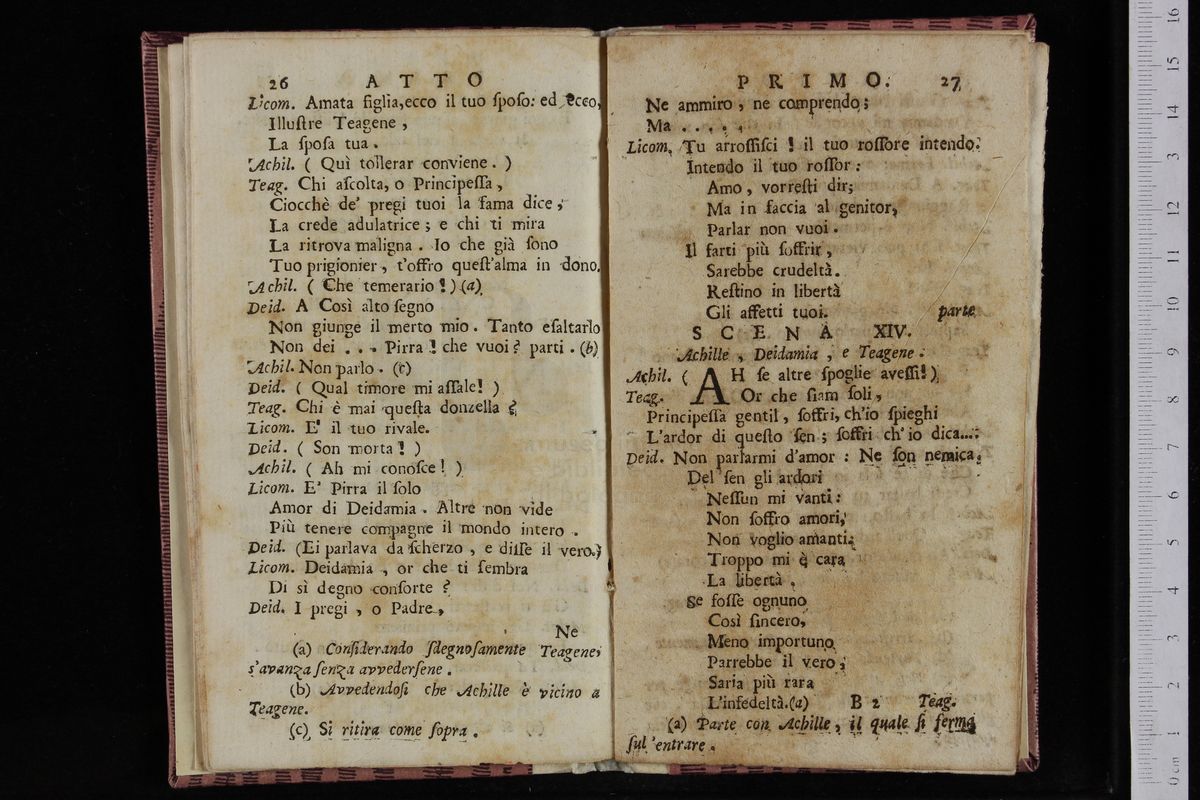 26 ATTO
Licom. Amata figlia, ecco il tuo ſpoſo: ed ecco,
Illuſtre Teagene,
La ſpoſa tua.
Achil. ( Quì tollerar conviene. )
Teag. Chi aſcolta, o Principeſſa,
Ciocchè de' pregi tuoi la fama dice,
La crede adulatrice; e chi ti mira
La ritrova maligna. Io che già ſono
Tuo prigionier, t'offro queſt'alma in dono.
Achil. ( Che temerario! ) (a)
Deid. A Così alto ſegno
Non giunge il merto mio. Tanto eſaltarlo
Non dei ... Pirra! che vuoi? parti. (b)
Achil. Non parlo. (c)
Deid. ( Qual timore mi aſſale! )
Teag. Chi è mai queſta donzella?
Licom. E' il tuo rivale.
Deid. ( Son morta! )
Achil. ( Ah mi conoſce! )
Licom. E' Pirra il ſolo
Amor di Deidamia. Altre non vide
Più tenere compagne il mondo intero.
Deid. (Ei parlava da ſcherzo, e diſſe il vero.)
Licom. Deidamia, or che ti ſembra
Di sì degno conſorte?
Deid. I pregi, o Padre,
Ne
(a) Conſiderando ſdegnoſamente Teagene,
s'avanza ſenza avvederſene.
(b) Avvedendoſi che Achille è vicino a
Teagene.
(c) Si ritira come ſopra.
PRIMO. 27
Ne ammiro, ne comprendo;
Ma .....
Licom. Tu arroſſiſci! il tuo roſſore intendo.
Intendo il tuo roſſor:
Amo, vorreſti dir;
Ma in faccia al genitor,
Parlar non vuoi.
Il farti più ſoffrir,
Sarebbe crudeltà.
Reſtino in libertà
Gli affetti tuoi. parte
SCENA XIV.
Achille, Deidamia, e Teagene.
Achil. ( AH ſe altre ſpoglie aveſſi! )
Teag. Or che ſiam ſoli,
Principeſſa gentil, ſoffri, ch'io ſpieghi
L'ardor di queſto ſen; ſoffri ch'io dica....
Deid. Non parlarmi d'amor: Ne ſon nemica.
Del ſen gli ardori
Neſſun mi vanti:
Non ſoffro amori,
Non voglio amanti;
Troppo mi è cara
La libertà.
Se foſſe ognuno
Così ſincero,
Meno importuno
Parrebbe il vero,
Saria più rara
L'infedeltà.(a) B 2 Teag.
(a) Parte con Achille, il quale ſi ferma
ſul'entrare.